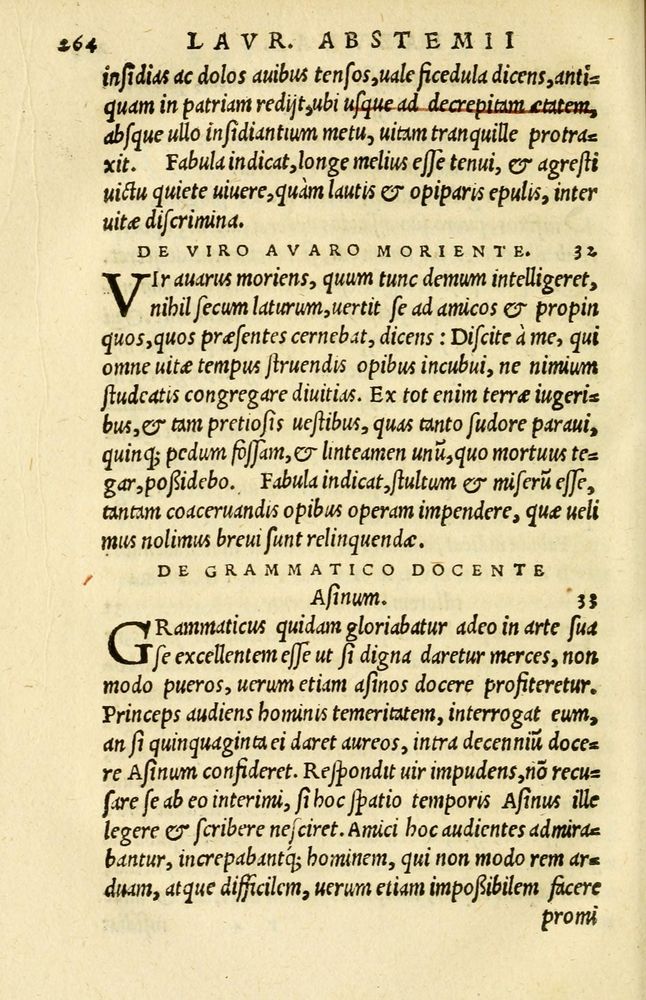 264 LAVR. ABSTEMII
inſidias ac dolos auibus tenſos,uale ficedula dicens,anti=
quam in patriam redijt,ubi uſque ad decrepitam ætatem,
abſque ullo inſidiantium metu, uitam tranquille protra=
xit. Fabula indicat,longe melius eſſe tenui, & agreſti
uictu quiete uiuere,quàm lautis & opiparis epulis, inter
uitæ diſcrimina.
DE VIRO AVARO MORIENTE. 32
VIr auarus moriens, quum tunc demum intelligeret,
nihil ſecum laturum,uertit ſe ad amicos & propin
quos,quos præſentes cernebat, dicens : Diſcite à me, qui
omne uitæ tempus ſtruendis opibus incubui, ne nimium
ſtudeatis congregare diuitias. Ex tot enim terræ iugeri=
bus,& tam pretioſis ueſtibus, quas tanto ſudore paraui,
quinq; pedum foſſam,& linteamen unū,quo mortuus te=
gar,poßidebo. Fabula indicat,ſtultum & miſerū eſſe,
tantam coaceruandis opibus operam impendere, quæ ueli
mus nolimus breui ſunt relinquendæ.
DE GRAMMATICO DOCENTE
Aſinum. 33
GRammaticus quidam gloriabatur adeo in arte ſua
ſe excellentem eſſe ut ſi digna daretur merces, non
modo pueros, uerum etiam aſinos docere profiteretur.
Princeps audiens hominis temeritatem, interrogat eum,
an ſi quinquaginta ei daret aureos, intra decenniū doce=
re Aſinum confideret. Reſpondit uir impudens,nō recu=
ſare ſe ab eo interimi, ſi hoc ſpatio temporis Aſinus ille
legere & ſcribere neſciret. Amici hoc audientes admira=
bantur, increpabantq; hominem, qui non modo rem ar=
duam, atque difficilem, uerum etiam impoßibilem facere
promi